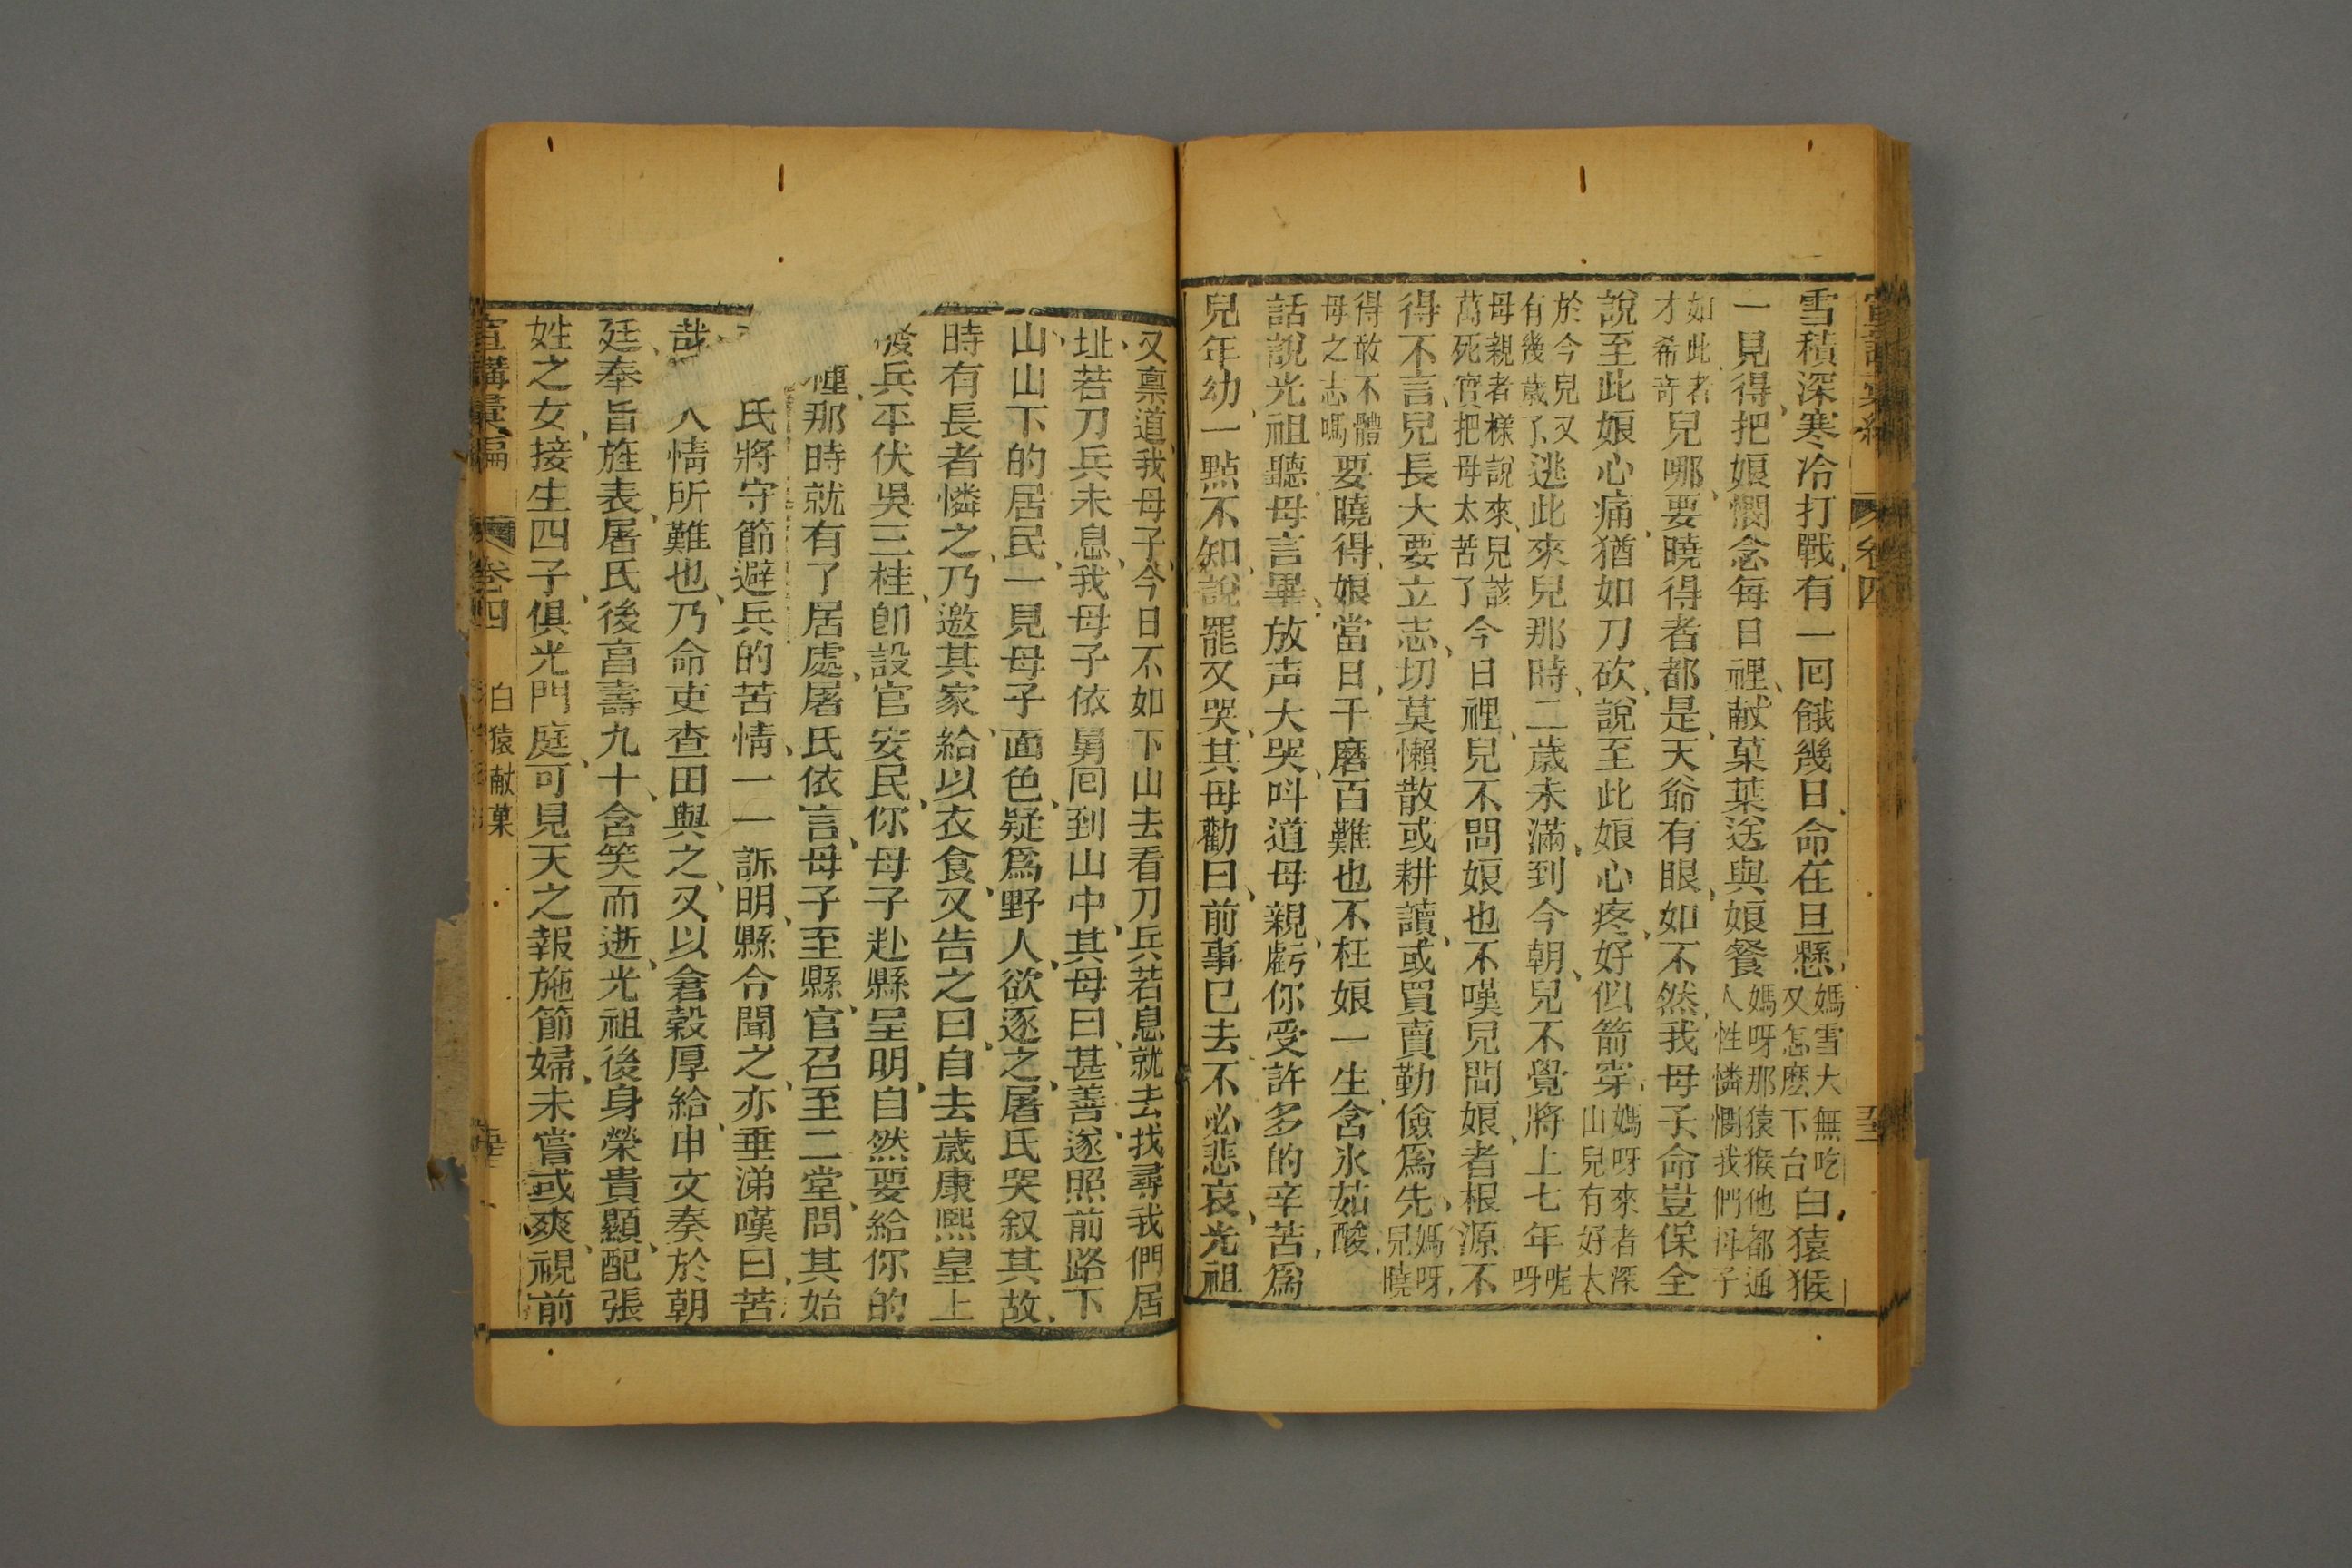 宣講彙編 卷四
雪積深寒冷打戰有一回餓幾日命在旦懸媽雪大無吃又怎麽下台白猿猴
一見得把娘憫念每日裡献菓葉送與娘餐媽呀那猿猴他都通人性憐憫我們母子
如此者才希奇兒哪要曉得者都是天爺有眼如不然我母子命豈保全
說至此娘心痛猶如刀砍說至此娘心疼好似箭穿媽呀來者深山兒有好大
於今兒又有幾歲了逃此來兒那時二歲未滿到今朝兒不覺將上七年呢呀
母親者樣說來兒該萬死實把母太苦了今日裡兒不問娘也不嘆兒問娘者根源不
得不言兒長大要立志切莫懶散或耕讀或買賣勤儉爲先媽呀兒曉
得敢不體母之志嗎要曉得娘當日千磨百難也不枉娘一生含氷茹酸
話說光祖聽母言畢放声大哭呌道母親虧你受許多的辛苦爲
兒年幼一點不知說罷又哭其母勸曰前事已去不必悲哀光祖
又禀道我母子今日不如下山去看刀兵若息就去找尋我們居
址若刀兵未息我母子依舅回到山中其母曰甚善遂照前路下
山山下的居民一見母子面色疑爲野人欲逐之屠氏哭叙其故
時有長者憐之乃邀其家給以衣食又告之曰自去歲康熙皇上
發兵平伏吳三桂卽設官安民你母子赴縣呈明自然要給你的
種那時就有了居處屠氏依言母子至縣官召至二堂問其始
氏將守節避兵的苦情一一訴明縣令聞之亦垂涕嘆曰苦
哉人情所難也乃命吏查田與之又以倉穀厚給申文奏於朝
廷奉旨旌表屠氏後富壽九十含笑而逝光祖後身榮貴顯配張
姓之女接生四子俱光門庭可見天之報施節婦未嘗或爽視前
宣講彙編 卷四 白猿献菓